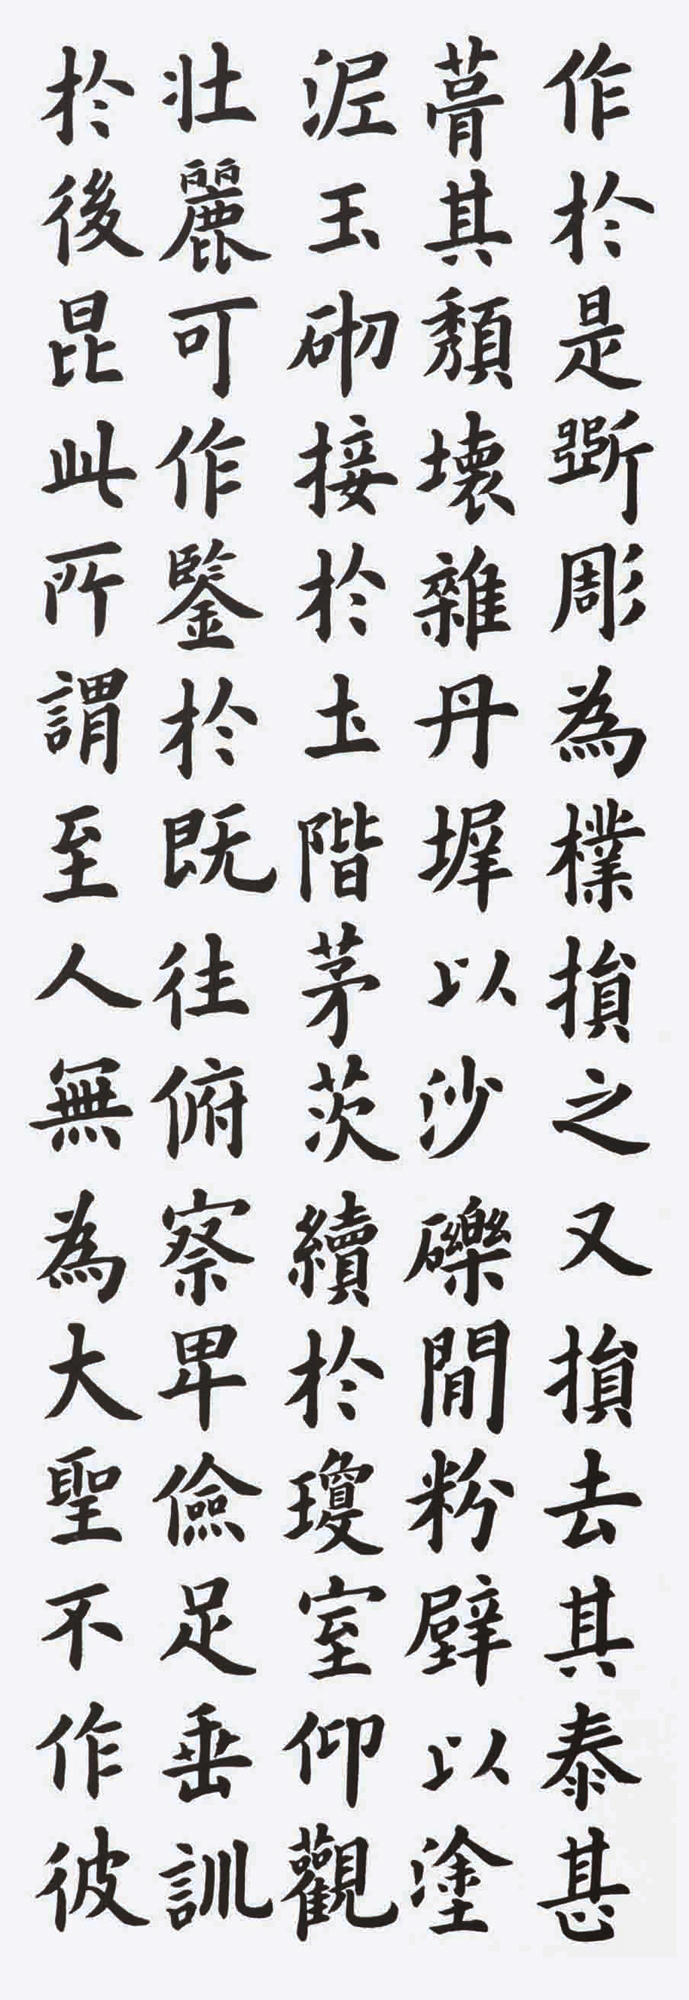 作於是斲彫為樸損之又損去其泰甚
葺其頹壞雜丹墀以沙礫間粉壁以塗
泥玉砌接於土階茅茨續於瓊室仰觀
壯麗可作鑒於既往俯察卑儉足垂訓
於後昆此所謂至人無為大聖不作彼